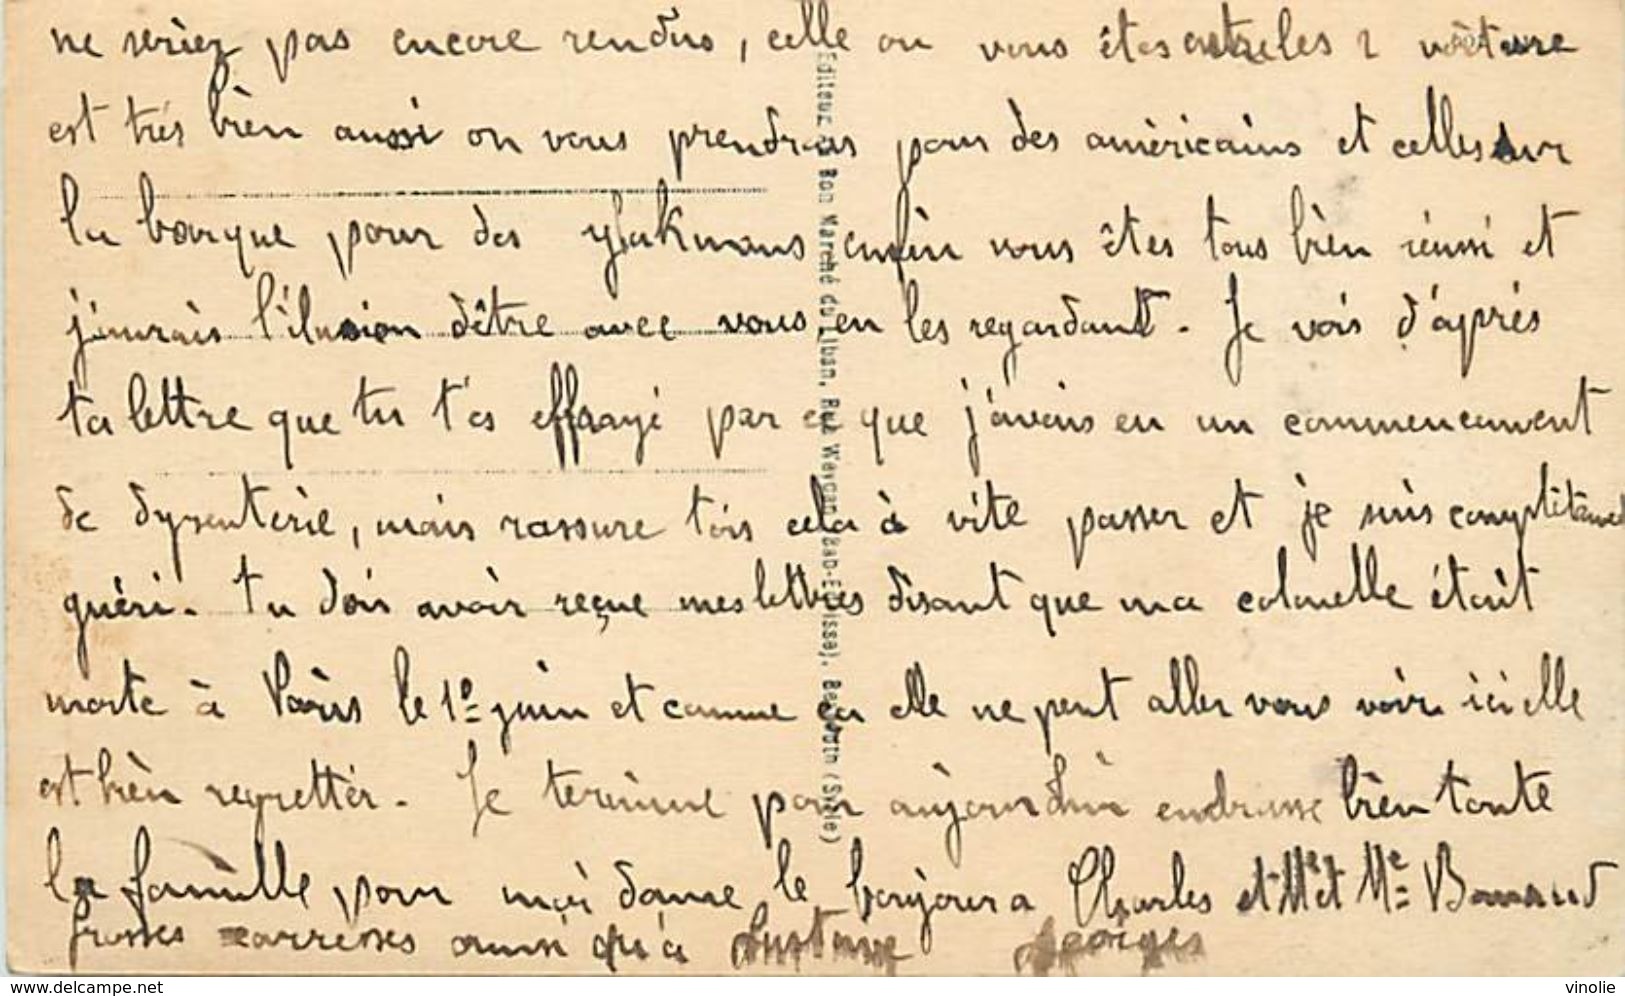 ne seriez pas encore rendus, celle ou vous êtes entre les 2 voiture
est trés bien aussi on vous prendrais pour des américains et celles sur
la barque pour des enfin vous êtes tous bien réussi et
j'aurais l'ilusion dêtre avec vous en les regardant. Je vois d'aprés
ta lettre que tu t'es effrayé par ce que j'avais eu un commencament
de dysenterie, mais rassure tois cela à vite passer et je suis complètement
guéri. Tu dois avoir reçue mes lettres disant que ma colonelle était
morte à Paris le 1º juin et comme ça elle ne peut aller vous voir ici elle
est bien regretter. Je termine pour aujourdhui embrasse bien toute
la famille pour moi donne le bonjour a Charles et Mr et Me
Grosses carresses aussi qu'a Gustave Georges
Editeur Bon Marché du Liban, Rue Weygan (Bab-Edrisse), Beyrouth (Syrie)
www.delcampe.net
vinolie